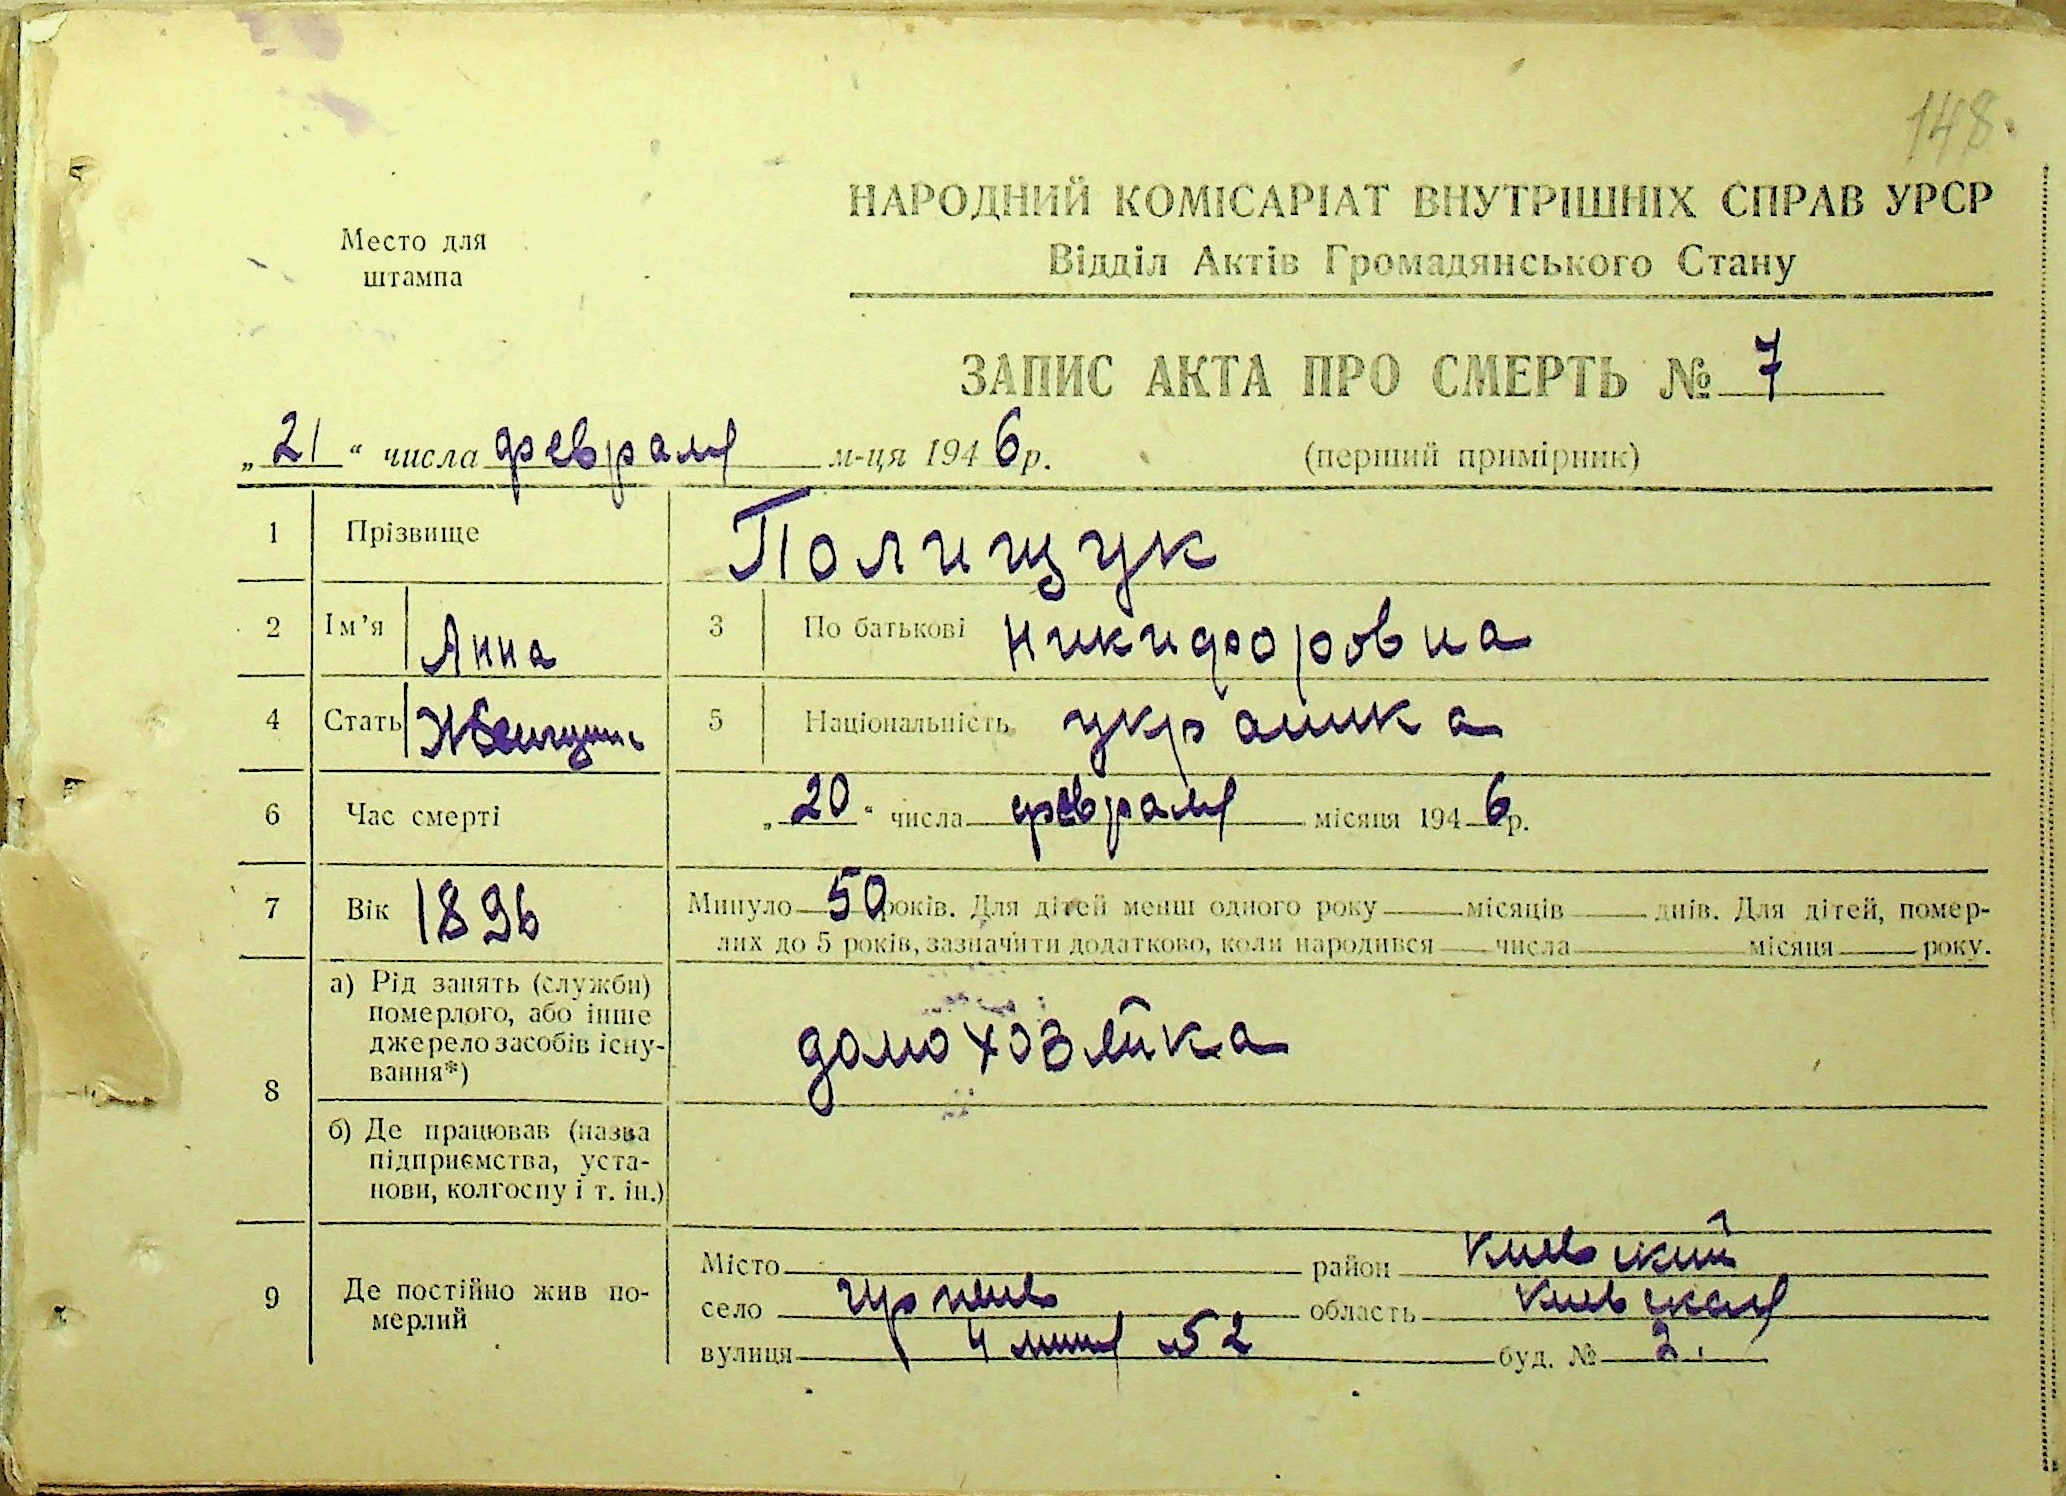 148.
Место для
штампа
НАРОДНИЙ КОМІСАРІАТ ВНУТРІШНІХ СПРАВ УРСР
Відділ Актів Громадянського Стану
ЗАПИС АКТА ПРО СМЕРТЬ № 7
„21“ числа февраля м-ця 1946 р. (перший примірник)
1 Прізвище Полищук
2 Ім’я Анна 3 По батькові Никифоровна
4 Стать 5 Національність украинка
6 Час смерті „20“ числа февраля місяця 1946 р.
7 Вік 1896 Минуло 50 років. Для дітей менш одного року місяців днів. Для дітей, помер-
лих до 5 років, зазначити додатково, коли народився числа місяця року.
8 а) Рід занять (служби)
померлого, або інше
джерело засобів існу-
вання*)
домохозяйка
б) Де працював (назва
підприємства, уста-
нови, колгоспу і т. ін.)
9 Де постійно жив по-
мерлий
Місто район Киевский
село область Киевская
вулиця 4 линия 52 буд. № 2.